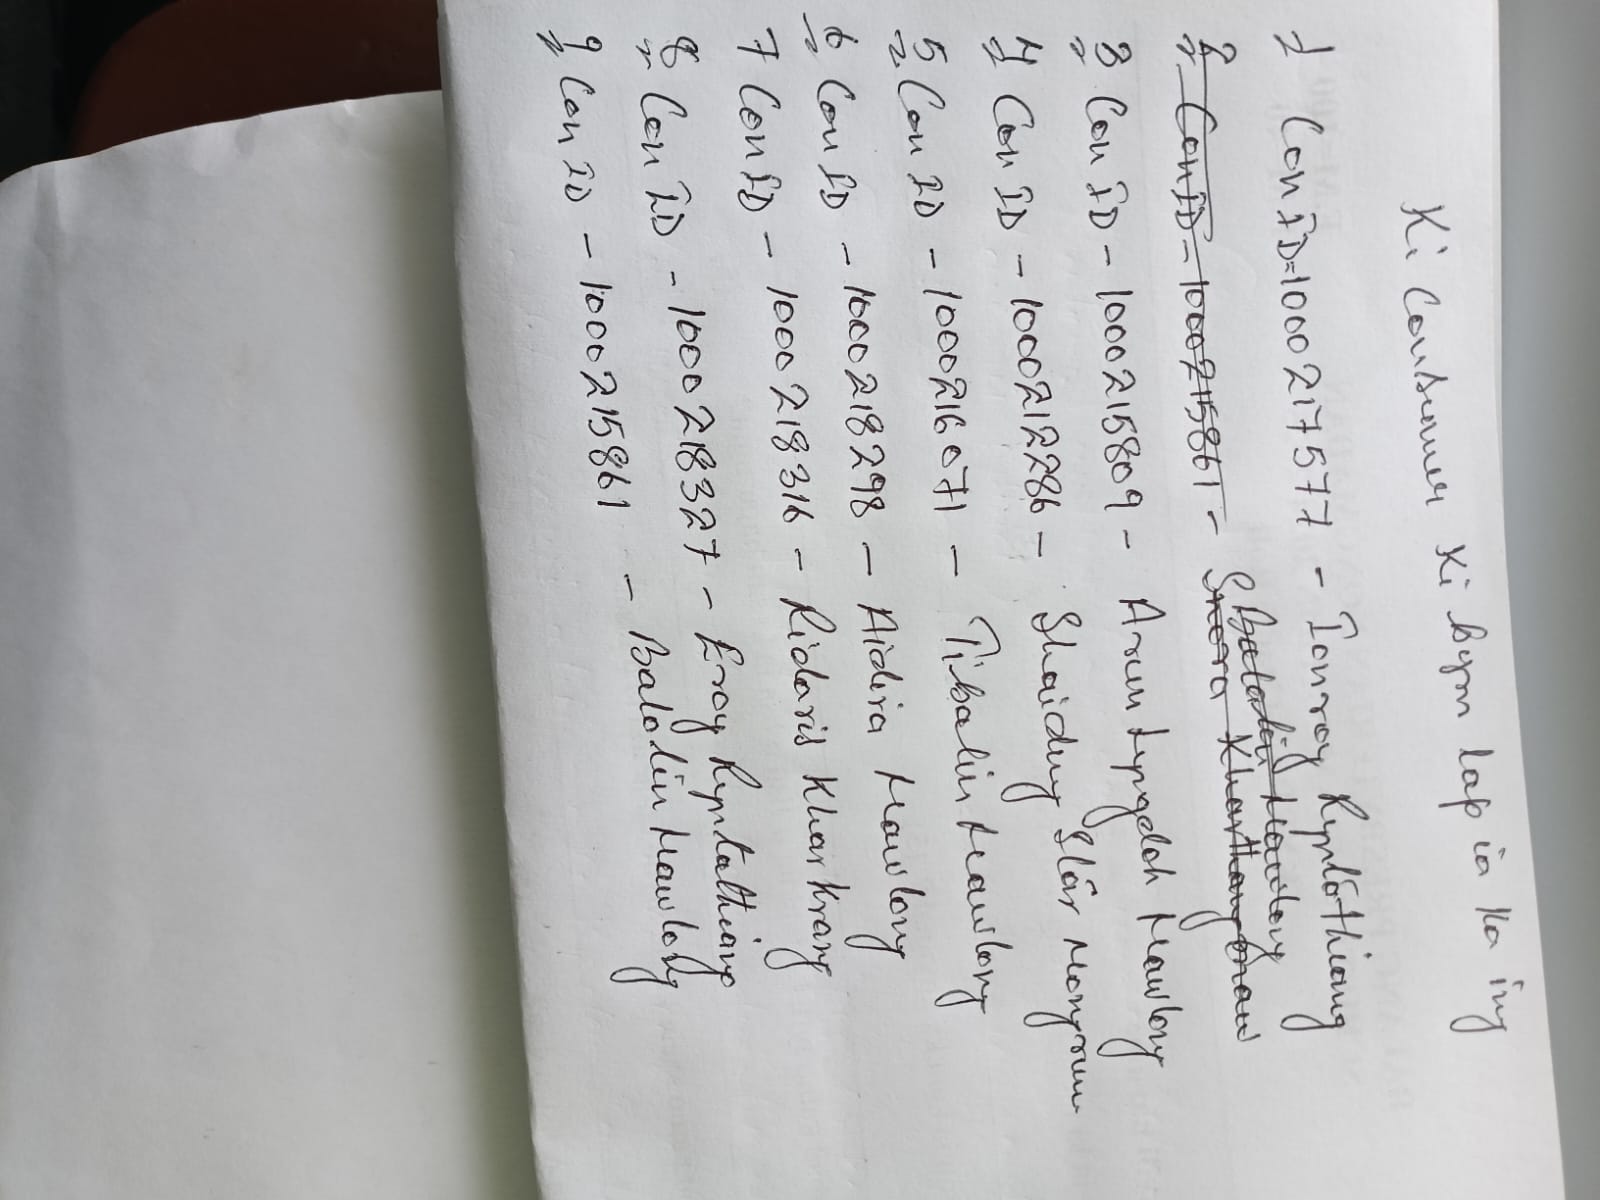 Ki Consumer Ki bym lap ia ka ing
1 Con ID=100021 7577 - Ionroy Ryntathiang
2 Con ID - 100021 5861 - Batalin Mawlong
3 Con ID - 1000215809 - Arun Lyngdoh Mawlong
4 Con ID - 1000212286 - Shaidng Star Nongrum
5 Con ID - 1000216071 - Tibalin Mawlong
6 Con ID - 1000218298 - Aidira Mawlong
7 Con ID - 1000218316 - Ridaris Kharkrang
8 Con ID - 1000218327 - Eroy Ryntathiang
9 Con ID - 1000215861 - Balalin Mawlong